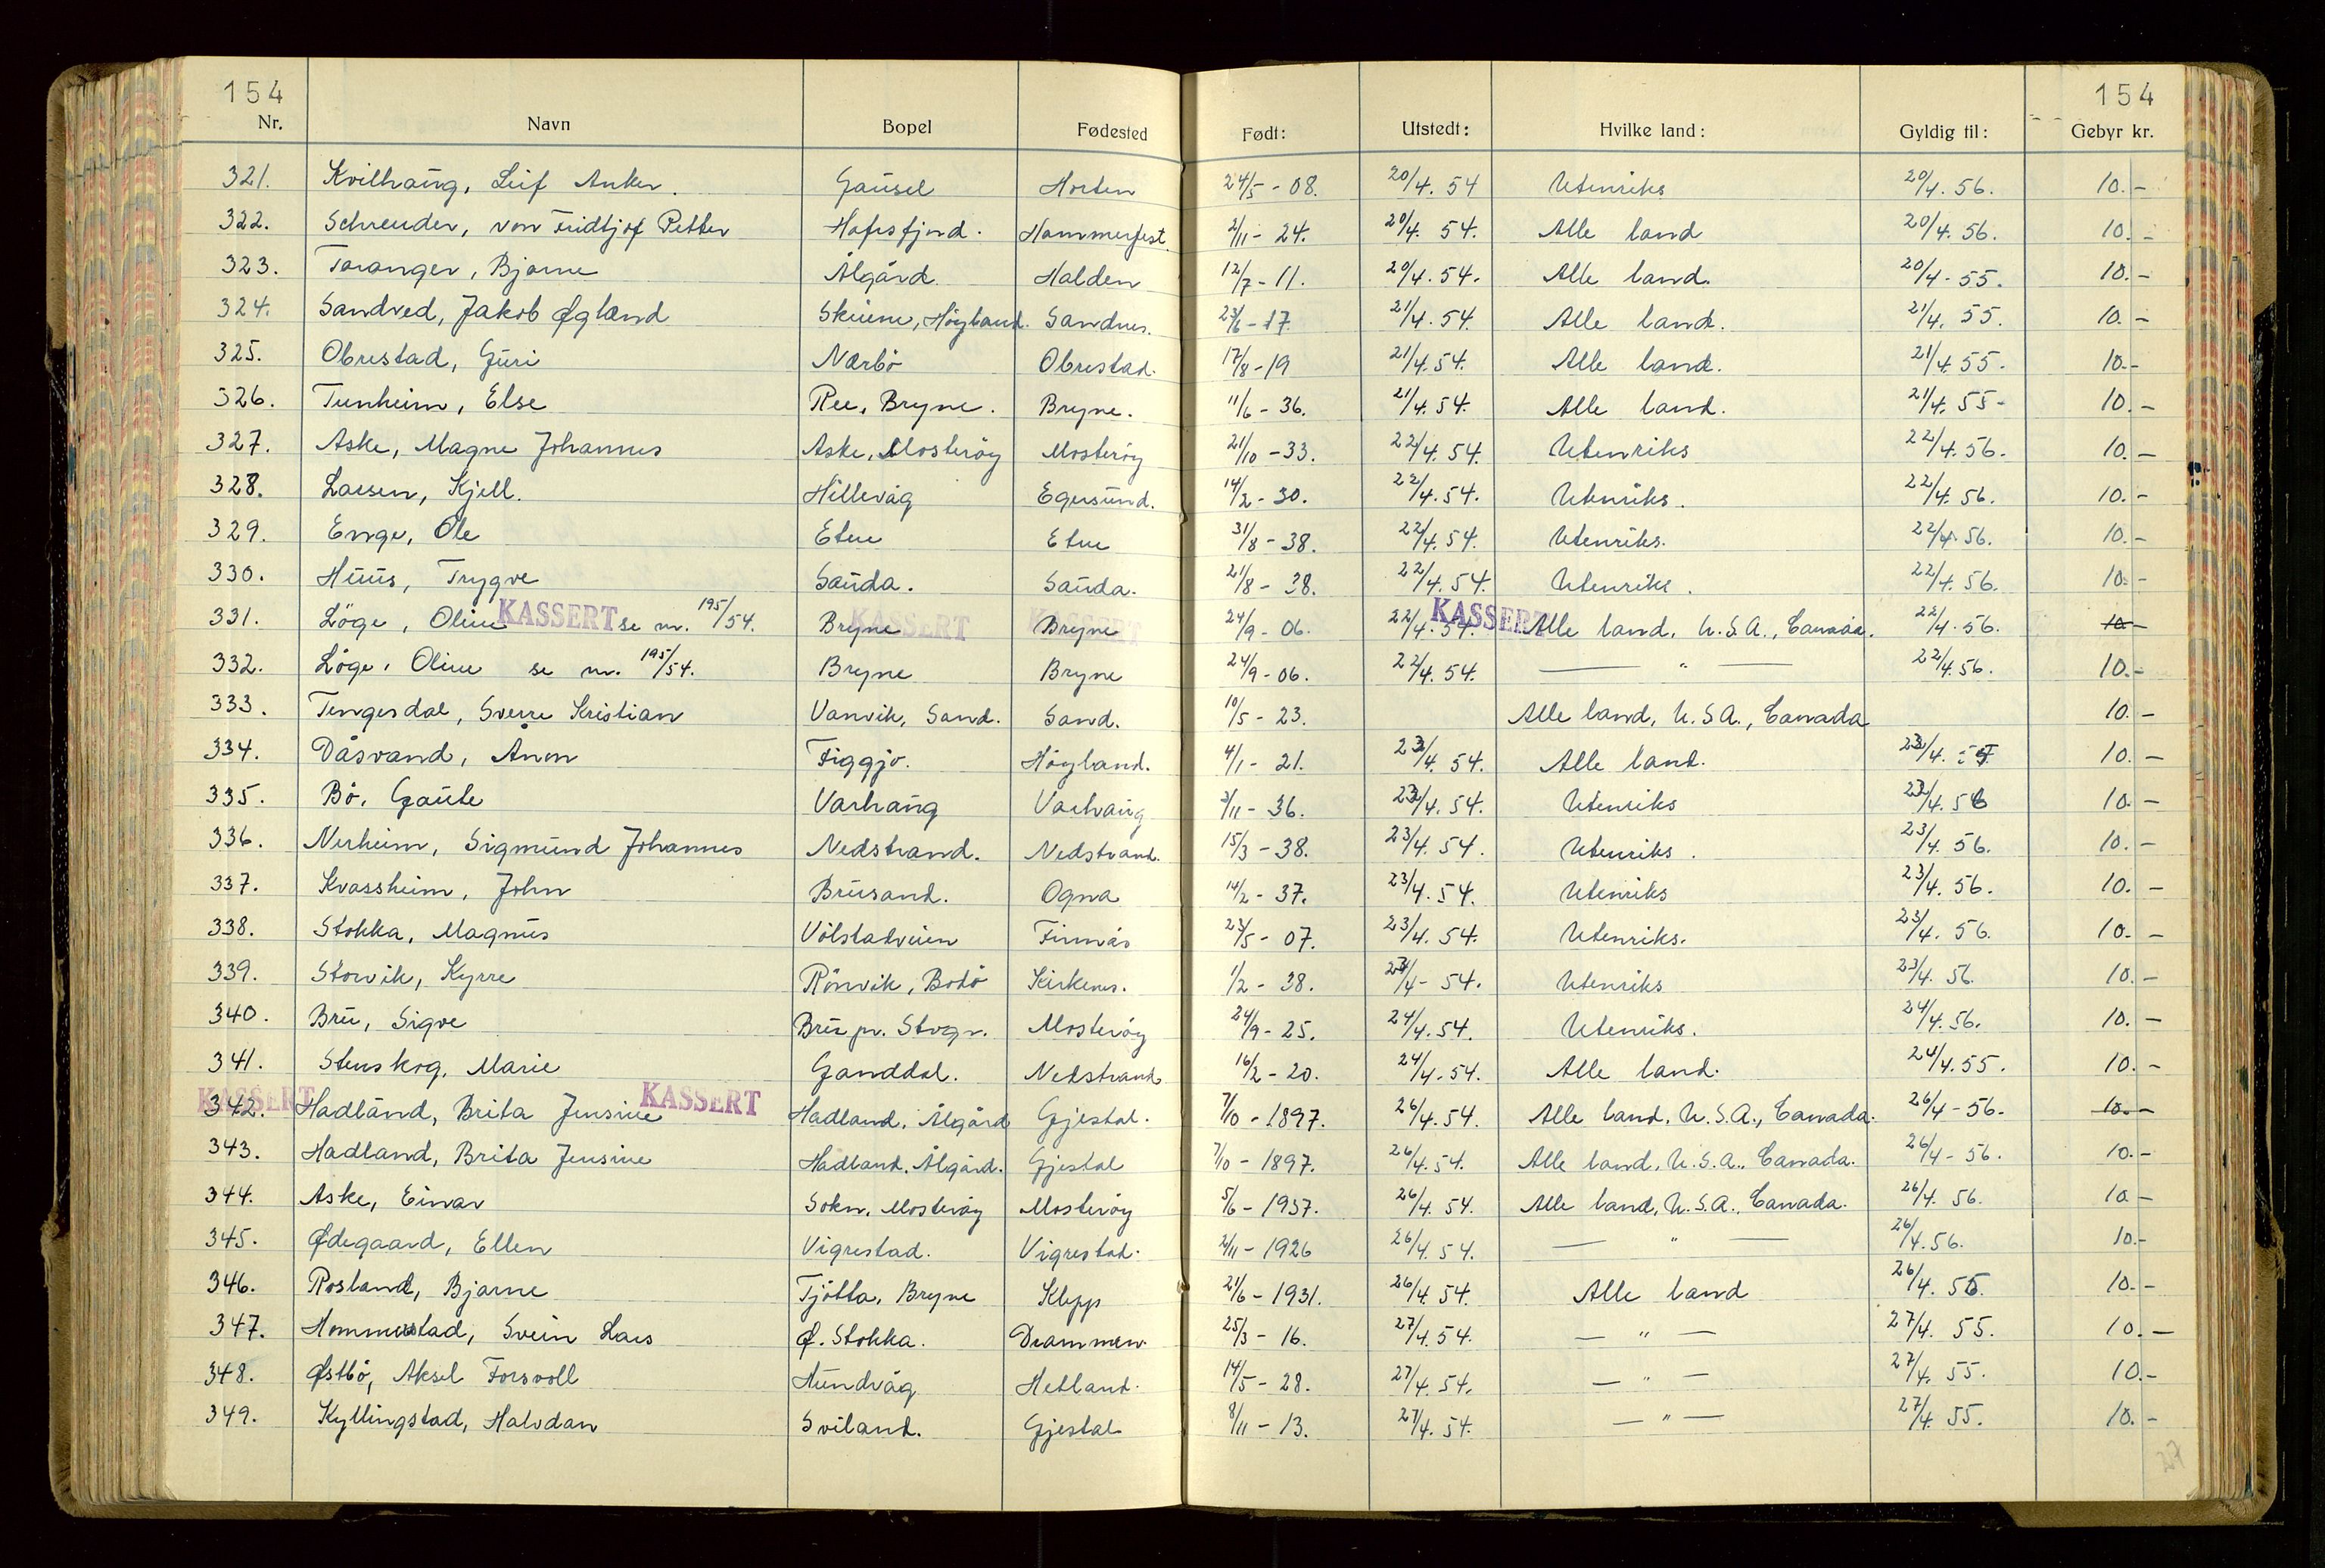 154 154
Nr. Navn Bopel Fødested Født: Utstedt: Hvilke land: Gyldig til: Gebyr kr.
321. Kvilhaug, Leif Anker. Gausel Horten 24/5 - 08. 20/4. 54 Utenriks 20/4. 56. 10.-
322. Schreuder, von Fridtjof Petter Hafrsfjord. Hammerfest. 2/11 - 24. 20/4. 54. Alle land 20/4. 56. 10.-
323. Taranger, Bjarne Ålgård. Halden 12/7 - 11. 20/4. 54. Alle land. 20/4 - 55. 10.-
324. Sandved, Jakob Øglænd Skiene, Höyland. Sandnes. 23/6 - 17. 21/4. 54. Alle land. 21/4. 55. 10.-
325. Obrestad, Guri Nærbö Obrestad. 17/8 - 19 21/4. 54. Alle land. 21/4. 55. 10.-
326. Tunheim, Else Ree, Bryne. Bryne. 11/6 - 36. 21/4. 54. Alle land. 21/4. 55- 10.-
327. Aske, Magne Johannes Aske, Mosteröy Mosteröy 21/10 - 33. 22/4. 54. Utenriks 22/4. 56. 10.-
328. Larsen, Kjell. Hillevåg Egersund. 14/2 - 30. 22/4. 54. Utenriks. 22/4. 56. 10.-
329. Enge, Ole Etne Etne 31/8 - 38. 22/4. 54. Utenriks. 22/4. 56. 10.-
330. Huus, Trygve Sauda. Sauda. 21/8 - 38. 22/4. 54. Utenriks. 22/4. 56. 10.-
331. Löge, Oline KASSERT se nr. 195/54. Bryne KASSERT Bryne KASSERT 24/9 - 06. 22/4. 54. KASSERT Alle land, U.S.A., Canada. 22/4. 56. 10-
332. Löge, Oline se nr. 195/54. Bryne Bryne 24/9 - 06. 22/4. 54. — " — 22/4. 56. 10.-
333. Tengesdal, Sverre Kristian Vanvik, Sand. Sand. 10/5 - 23. Alle land, U.S.A., Canada 10.-
334. Dåsvand, Ånon Figgjo. Höyland. 4/1 - 21. 23/4. 54. Alle land. 23/4. 10.-
335. Bö, Gaute Varhaug Varhaug 3/11 - 36. 23/4. 54. Utenriks 23/4. 56 10.-
336. Nerheim, Sigmund Johannes Nedstrand. Nedstrand. 15/3 - 38. 23/4. 54. Utenriks. 23/4. 56. 10.-
337. Kvassheim, John Brusand. Ogna 14/2 - 37. 23/4. 54. Utenriks 23/4. 56. 10.-
338. Stokka, Magnus Völstadveien Finnås 23/5 - 07. 23/4. 54. Utenriks. 23/4. 56. 10.-
339. Storvik, Kyrre Rönvik, Bodö Kirkenes. 1/2 - 38. 23/4 - 54. Utenriks 23/4. 56. 10.-
340. Bru, Sigve Bru pr. Stvgr. Mosteröy 24/9 - 25. 24/4. 54. Utenriks. 24/4. 56. 10.-
341. Stenskog, Marie Ganddal. Nedstrand. 16/2 - 20. 24/4. 54. Alle land. 24/4. 55. 10.-
KASSERT 342. Hadland, Brita Jensine KASSERT Hadland, Ålgård Gjestal. 7/10 - 1897. 26/4. 54. Alle land, U.S.A., Canada. 26/4 - 56. 10.-
343. Hadland, Brita Jensine Hadland, Ålgård. Gjestal 7/10 - 1897. 26/4. 54. Alle land, U.S.A., Canada. 26/4 - 56. 10.-
344. Aske, Einar Sokn, Mosteröy Mosteröy 5/6 - 1937. 26/4. 54. Alle land, U.S.A., Canada. 26/4. 56. 10.-
345. Ødegaard, Ellen Vigrestad. Vigrestad. 2/11 - 1926 26/4. 54. — " — 26/4. 56. 10.-
346. Rosland, Bjarne Tjötta, Bryne Klepp 21/6 - 1931. 26/4. 54. Alle land 26/4. 10.-
347. Hommerstad, Svein Lars Ø. Stokka. Drammen 25/3 - 16. 27/4. 54. — " — 27/4. 55. 10.-
348. Østbö, Aksel Forsvoll Hundvåg Hetland. 14/5 - 28. 27/4. 54. — " — 27/4. 55. 10.-
349. Kyllingstad, Halvdan Sviland. Gjestal 8/11 - 13. 27/4. 54. — " — 27/4. 55. 10.-
27